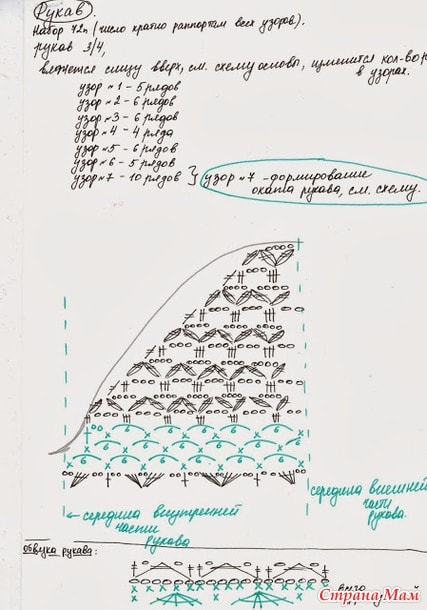 Рукав
Набор 72п (число кратно раппортам всех узоров).
рукав 3/4,
вяжется снизу вверх, см. схему основы, изменится кол-во р
в узорах.
узор №1 - 5 рядов
узор №2 - 6 рядов
узор №3 - 6 рядов
узор №4 - 4 ряда
узор №5 - 6 рядов
узор №6 - 5 рядов
узор №7 - 10 рядов
узор №7 - формирование
оката рукава, см. схему.
середина внешней
части
рукава.
середина внутренней
части
рукава
обвязка рукава:
СтранаМам